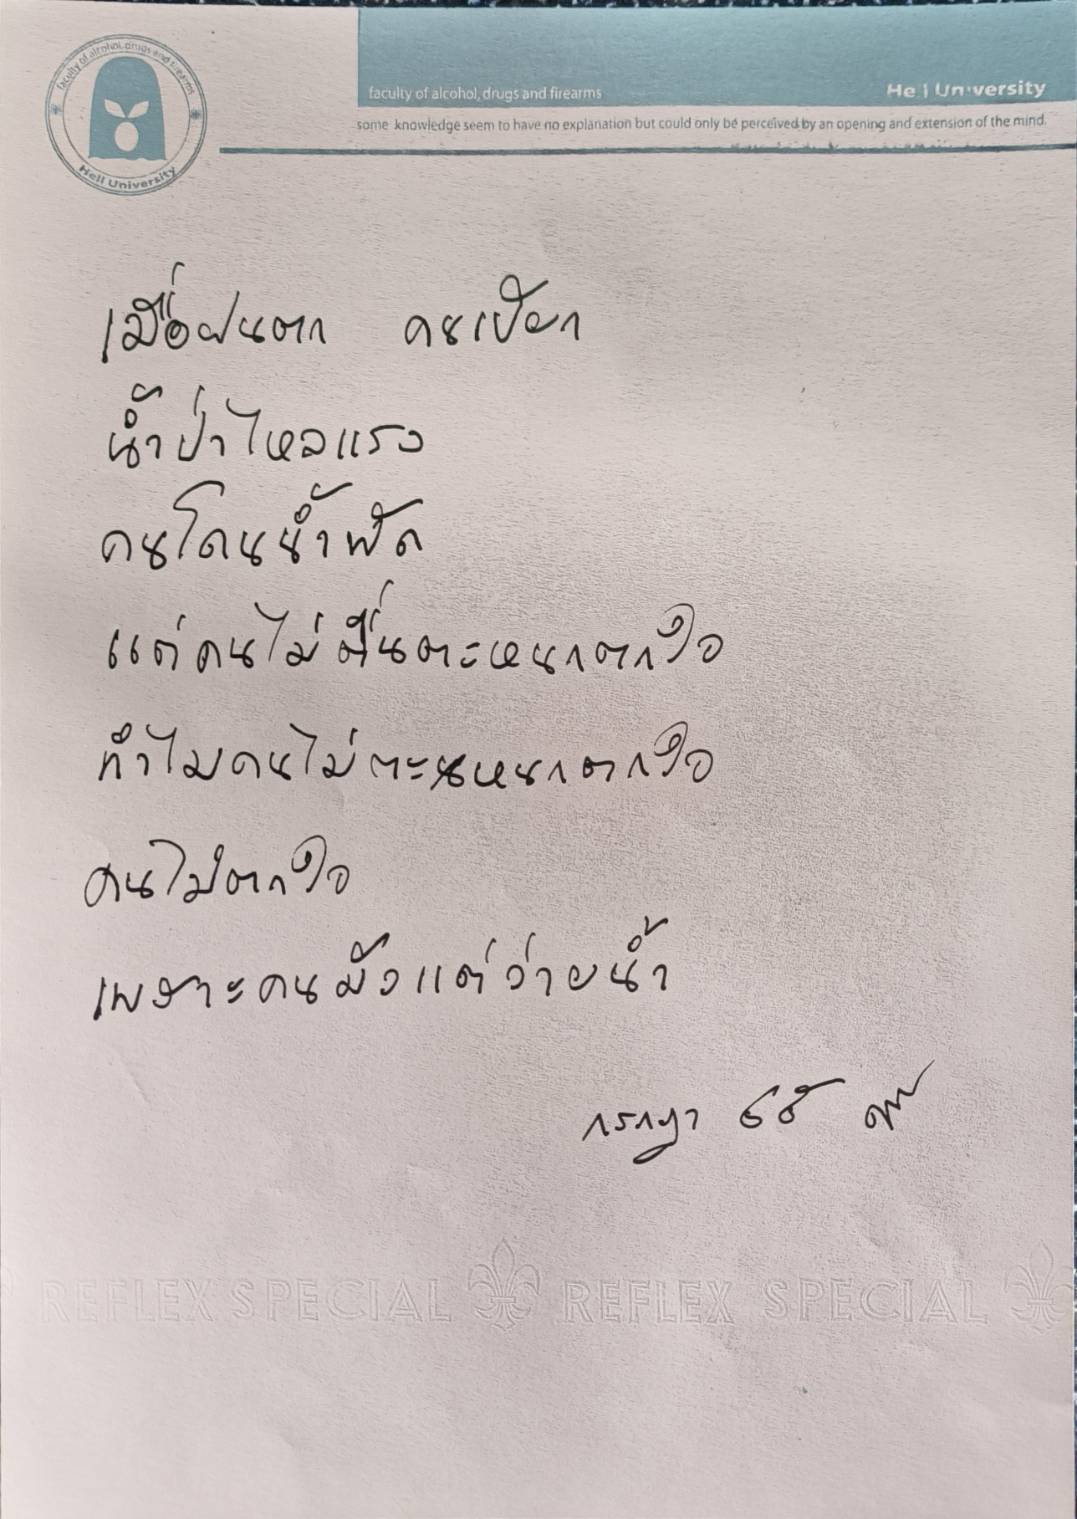 faculty of alcohol, drugs and firearms
Hell University
faculty of alcohol, drugs and firearms
Hell University
some knowledge seem to have no explanation but could only be perceived by an opening and extension of the mind.
เมื่อฝนตก คนเปียก
น้ำป่าไหลแรง
คนโดนน้ำพัด
แต่คนไม่ตื่นตะหนกตกใจ
ทำไมคนไม่ตะหนกตกใจ
คนไม่ตกใจ
เพราะคนมัวแต่ว่ายน้ำ
กรกฎา
REFLEX SPECIAL REFLEX SPECIAL